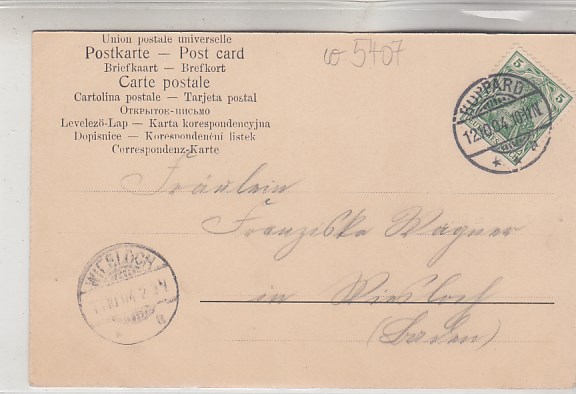 Union postale universelle
Postkarte — Post card
Briefkaart — Brefkort
Carte postale
Cartolina postale — Tarjeta postal
Открытое-письмо
Levelező-Lap — Karta korespondencyjna
Dopisnice — Korespondenční listek
Correspondenz-Karte
5407
5 5
BOPPARD
12.10.04. 10-11V.
Fräulein
Franziska Wagner
WIESLOCH
in Wiesloch
(Baden)